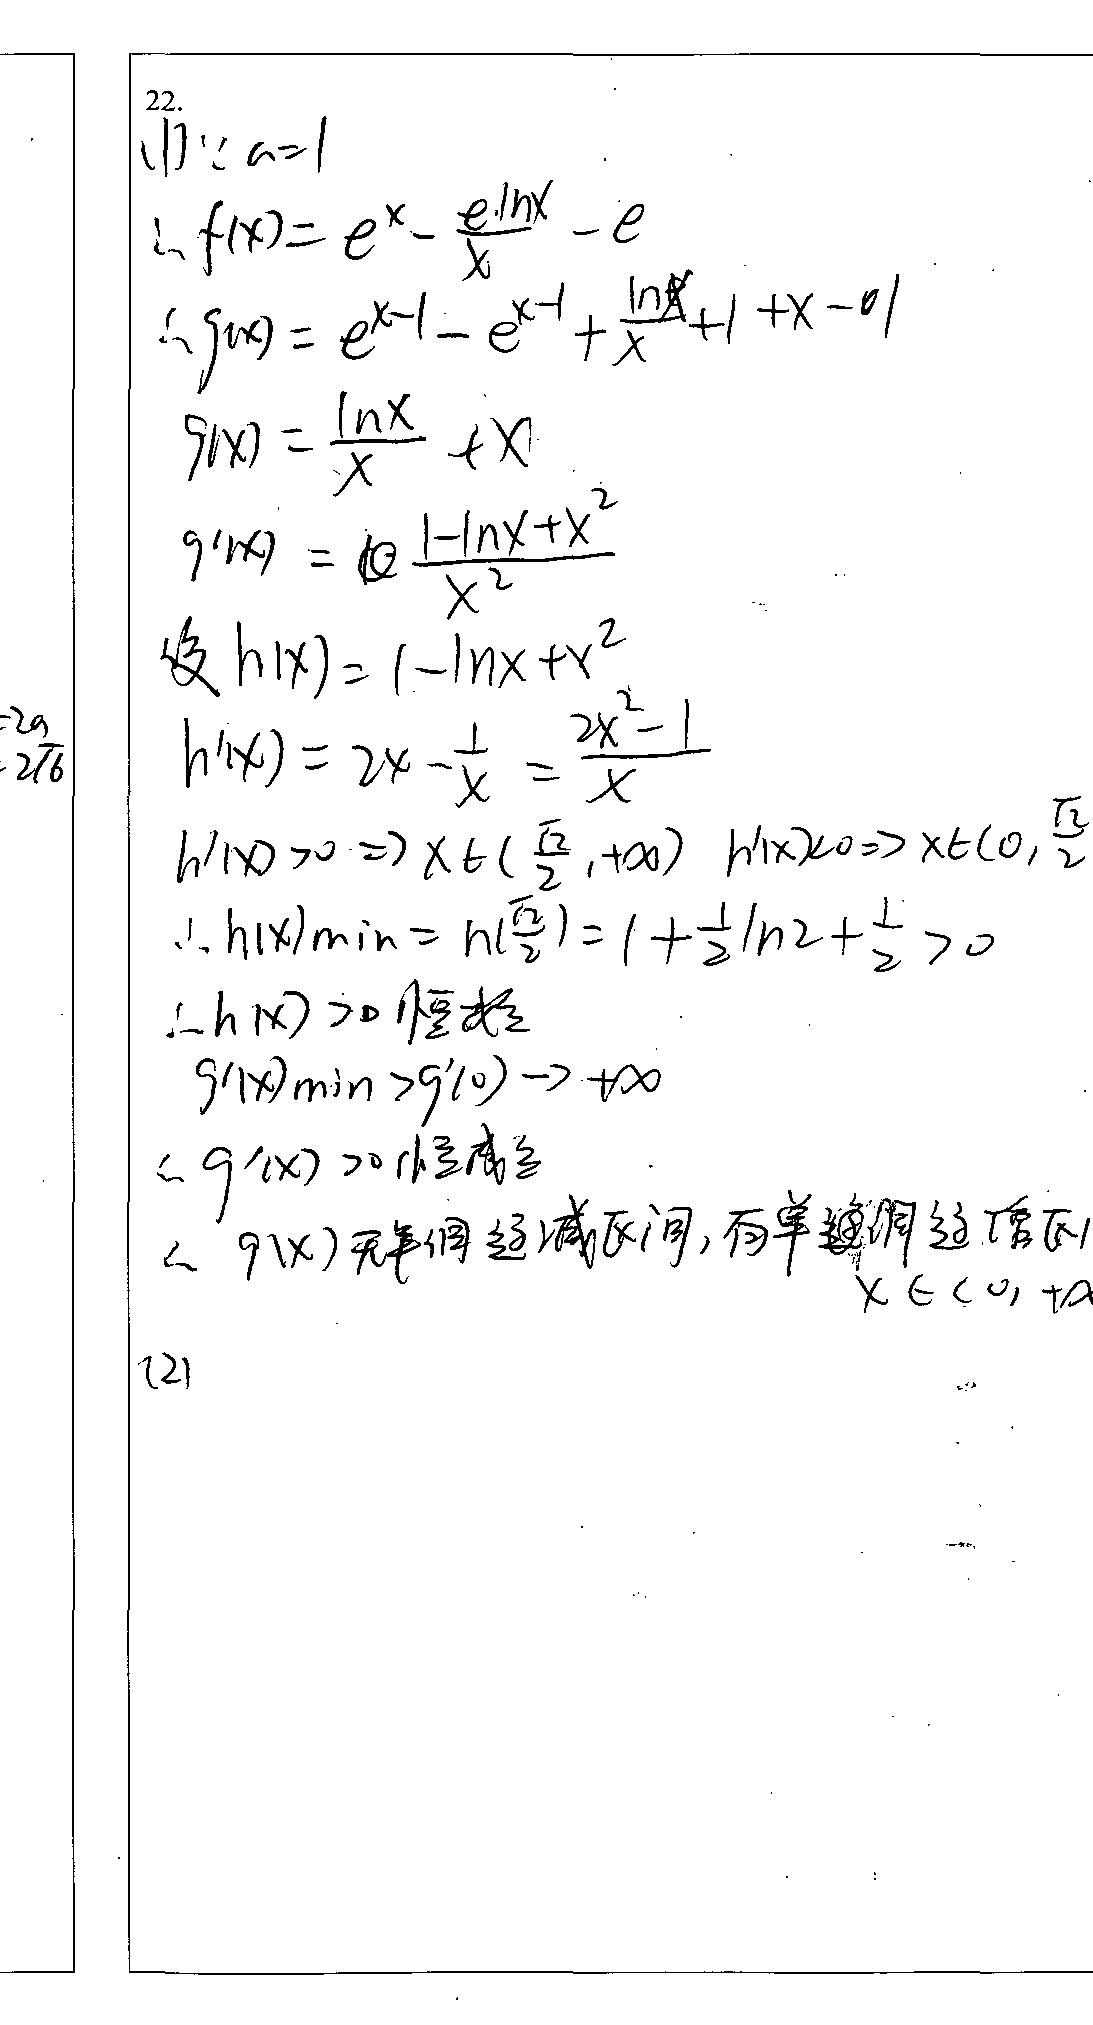 =2a
=2√6
22.
(1) ∵ a=1
∴ f(x) = e^x - (e·lnx)/x - e
∴ g(x) = e^(x-1) - e^(x-1) + lnx/x + 1 + x - 1
g(x) = lnx/x + x
g'(x) = (1-lnx+x²)/x²
设 h(x) = 1-lnx+x²
h'(x) = 2x - 1/x = (2x²-1)/x
h'(x)>0 => x∈(√2/2, +∞) h'(x)<0 => x∈(0, √2/2
∴ h(x)min = h(√2/2) = 1 + 1/2 ln2 + 1/2 > 0
∴ h(x) >0 恒成立
g'(x)min > g'(0) → +∞
∴ g'(x) >0 恒成立
∴ g(x) 无单调递减区间, 有单调递增区
x∈(0, +∞
(2)